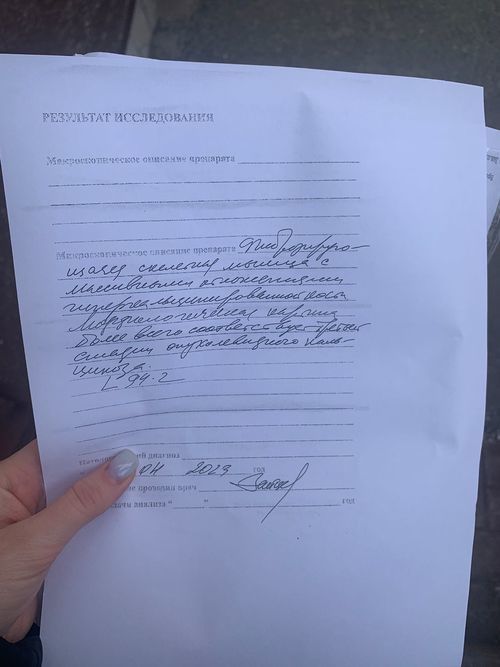 РЕЗУЛЬТАТ ИССЛЕДОВАНИЯ
Макроскопическое описание препарата
Микроскопическое описание препарата Фиброзирую-
щаяся скелетная мышца с
массивными отложениями
гиперкальцинированной кости
Морфологическая картина
более всего соответствует третьей
стадии опухолевидного каль-
циноза.
L 94.2
ий диагноз
04 2023 год
ие проводил врач
дачи анализа " " год